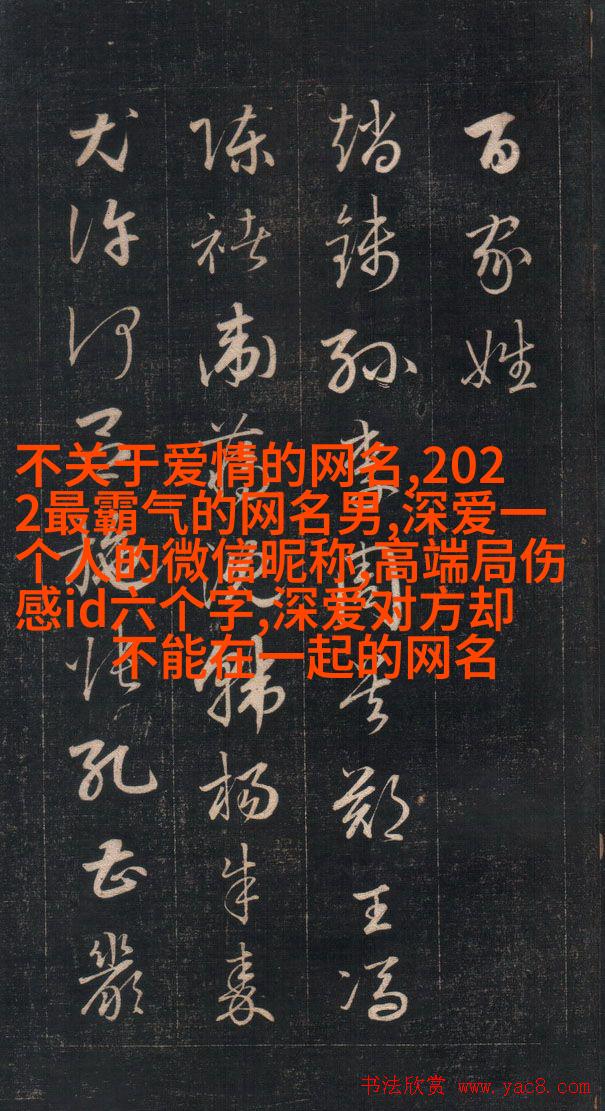 百家姓
趙錢孫李周吳鄭王馮
陳褚衛蔣沈韓楊朱秦
尤許何呂施張孔曹嚴
不关于爱情的网名,202
2最霸气的网名男,深爱一
个人的微信昵称,高端局伤
感id六个字,深爱对方却
不能在一起的网名
书法欣赏 www.yac8.com